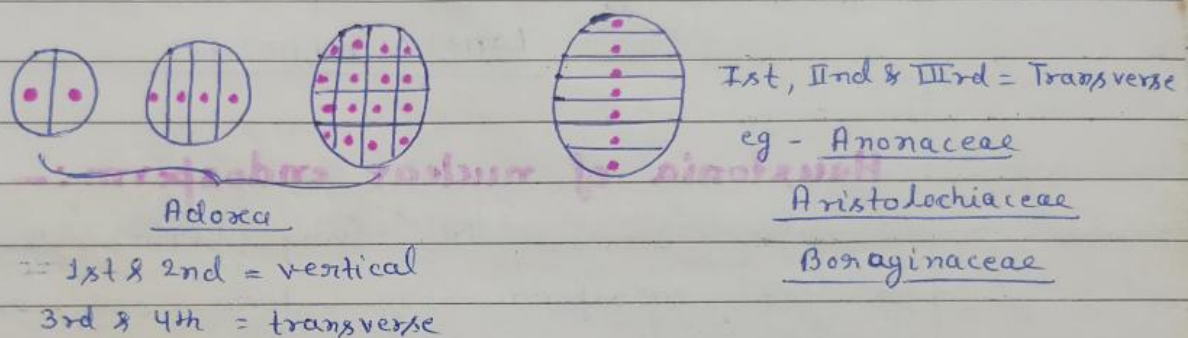 Ist, IInd & IIIrd = Transverse
eg - Anonaceae
Aristolochiaceae
Boraginaceae
Adoxea
= 1st & 2nd = vertical
3rd & 4th = transverse